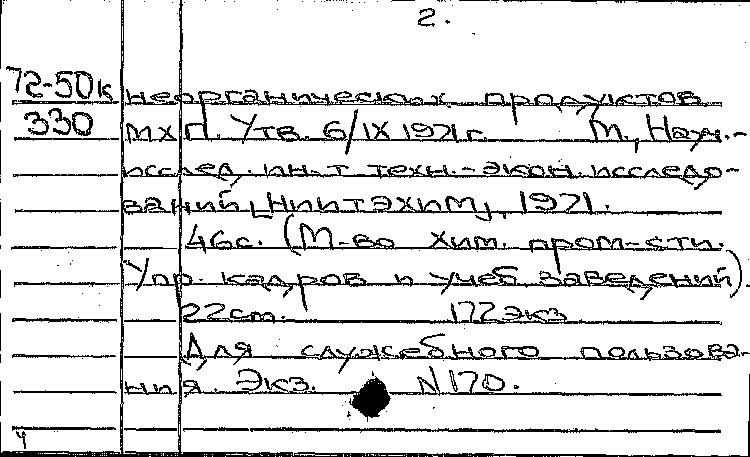 2.
72-50к неорганических продуктов
330 МХП. Утв. 6/IX 1971г. М., Науч.-
исслед. ин-т техн.-экон. исследо-
ваний [НИИТЭХИМ], 1971.
46с. (М-во хим. пром-сти.
Упр. кадров и учеб. заведений).
22см. 172экз
Для служебного пользова-
ния. Экз. N170.
4